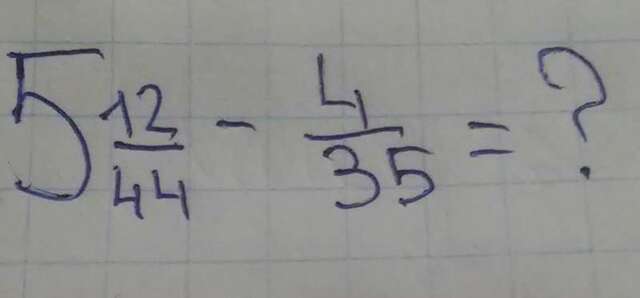 5 12/44 - 4/35 = ?